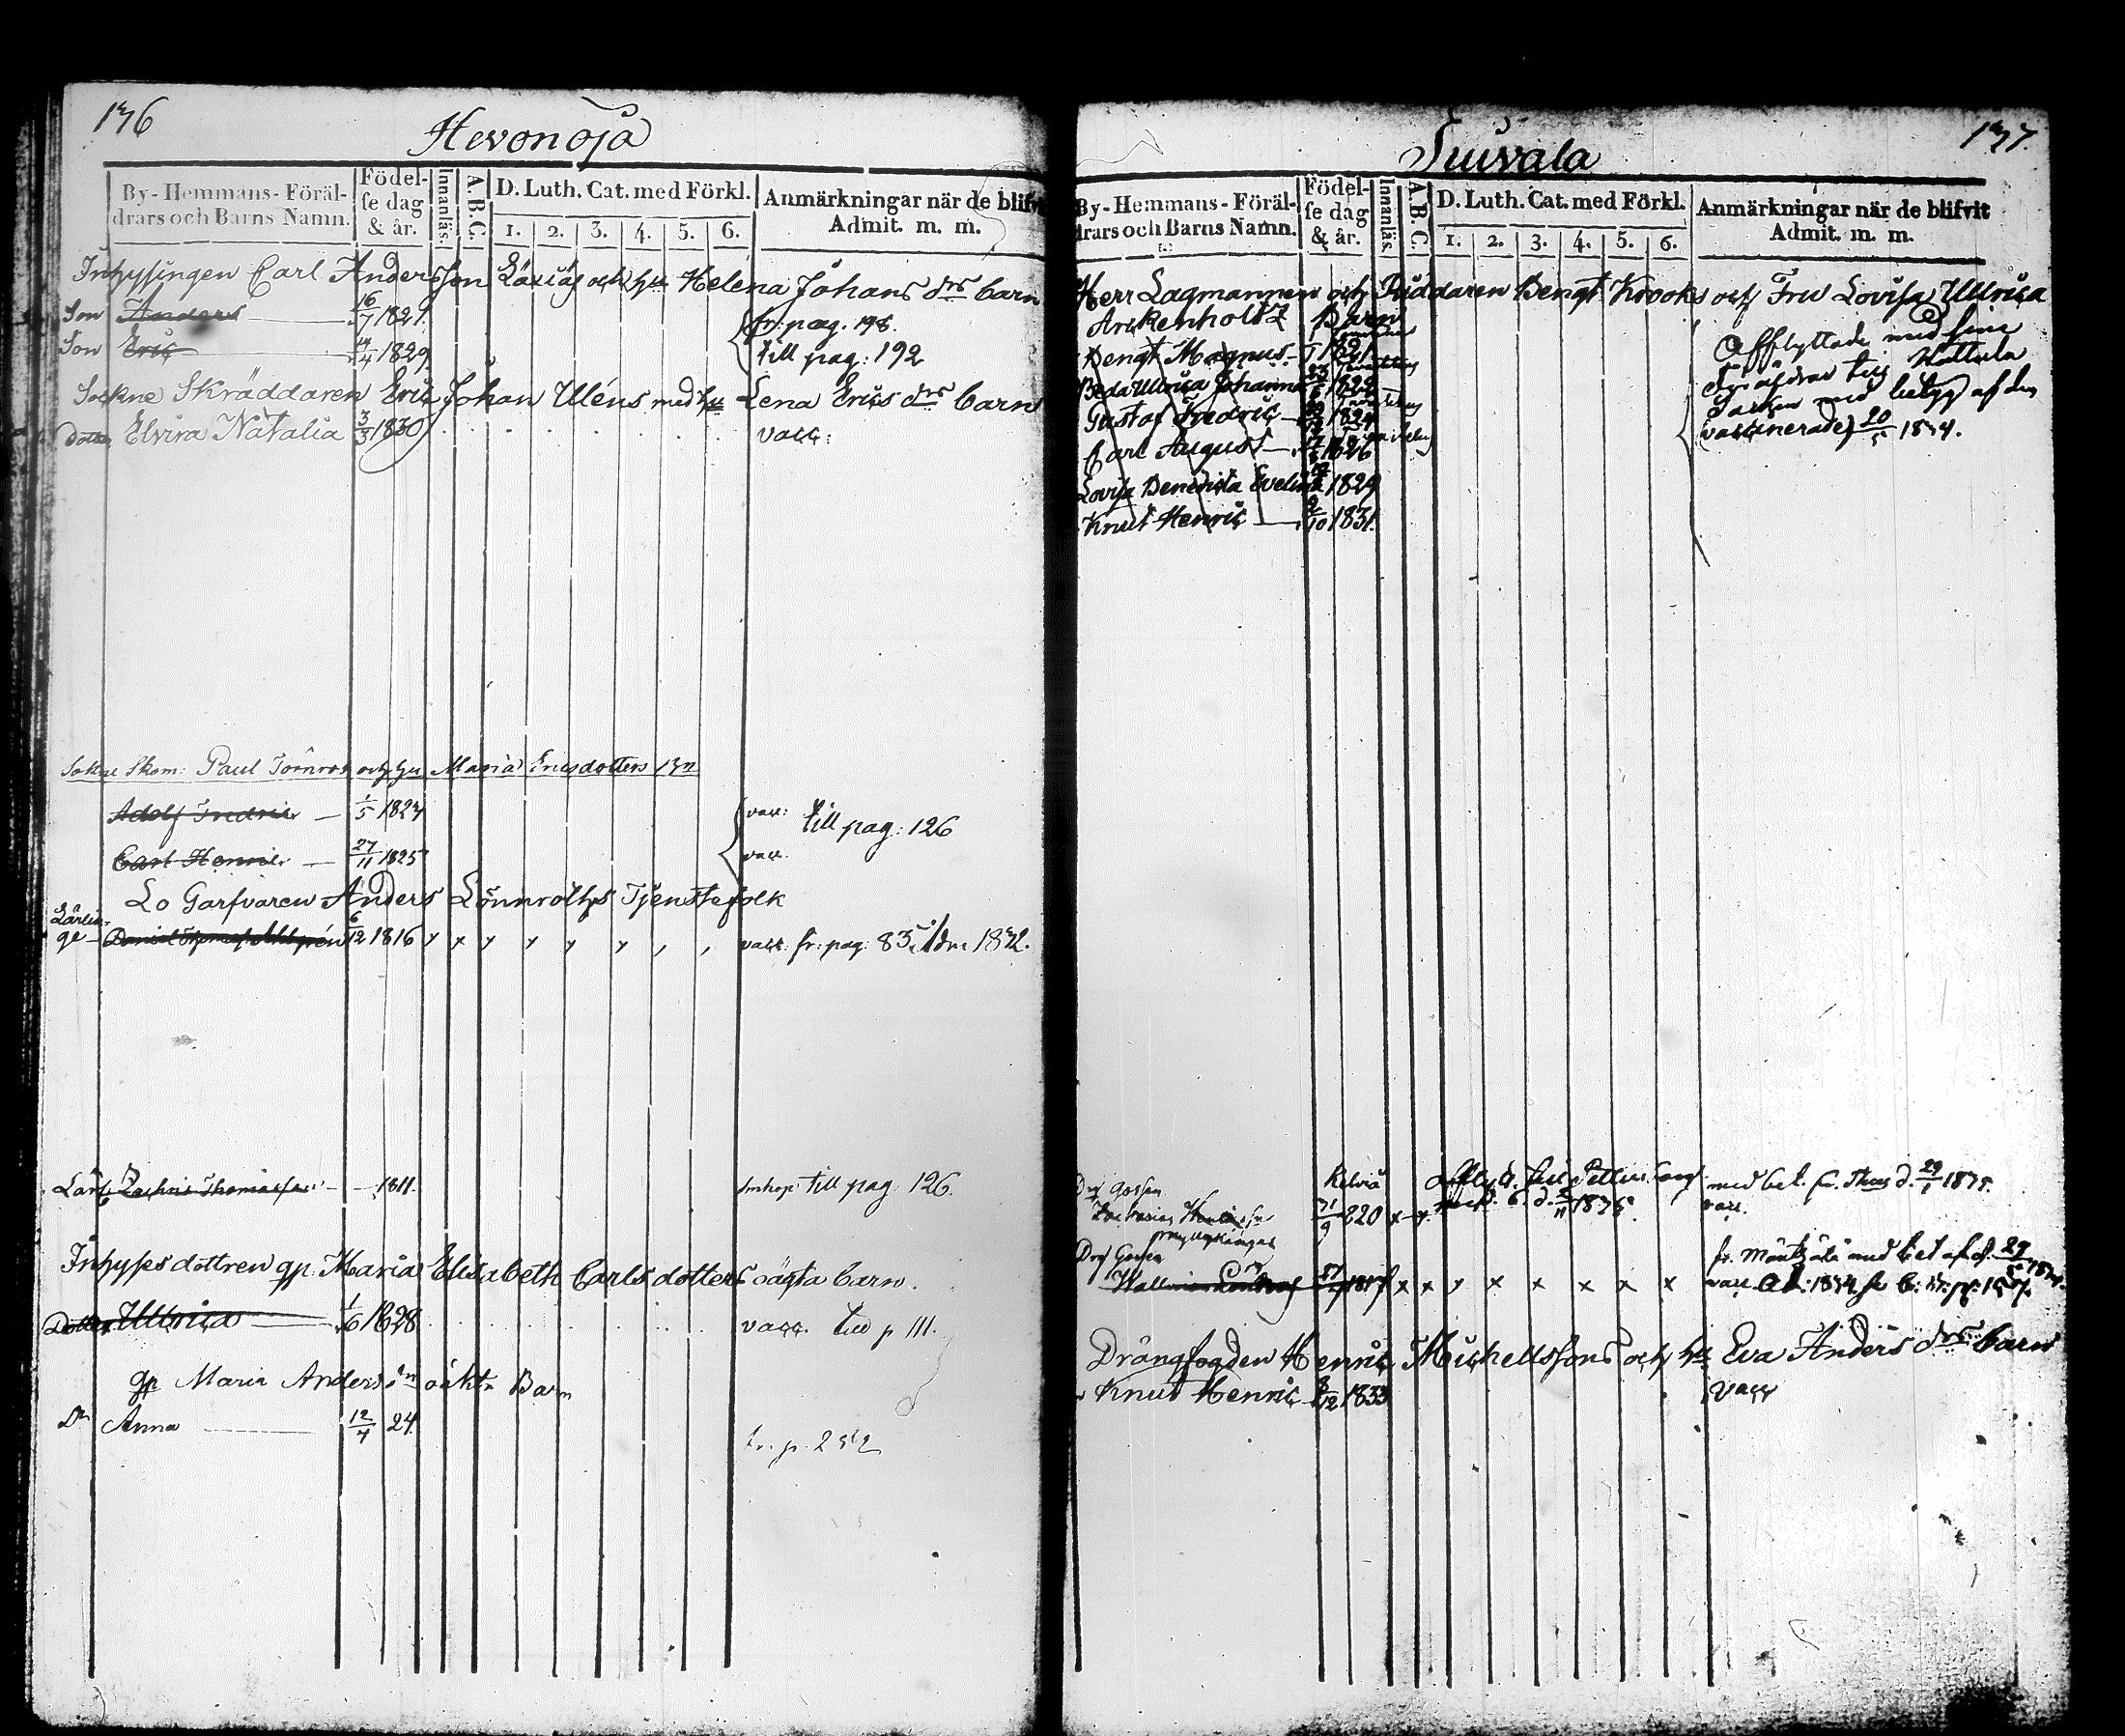 136
Hevonoja
By-Hemmans-Föräl-
drars och Barns Namn.
Födel-
se dag
& år.
Innanläs.
A. B. C.
D. Luth. Cat. med Förkl.
1. 2. 3. 4. 5. 6.
Anmärkningar när de blifv
Admit. m. m.
Inhysingen Carl Andersson och hu Helena Johans drs barn
Son Anders 16/7 1821. fr: pag. 198.
Son Eric 1829 till pag: 192
Sokne Skräddaren Eric Johan Uléns med hu Lena Erics drs barn
Dotter Elvira Natalia 3/3 1830 vacc:
Sokne Skom: Paul Törnros och hu Maria Ericsdotters Brn
Adolf Fredric 1/5 1823 vacc: till pag: 126
Carl Henric 27/11 1825 vacc.
Lo Garfvaren Anders Lönnroths Tjenstefolk
Lärlin-
ge 6/12 1816 x x y y y y , , vacc: fr: pag: 83. 1832.
Lärl: Zachris Thomasson 1811. till pag: 126.
Inhyses dottren qp. Maria Elisabeth Carls dotters oägta barn.
Dotter Ullrica 1/6 1828 vacc. till p 111.
qp Maria Anders dn oäkta Barn
Dr Anna 12/4 24. fr. p. 252
137.
Suivala
By-Hemmans-Föräl-
drars och Barns Namn.
Födel-
se dag
& år.
Innanläs.
A. B. C.
D. Luth. Cat. med Förkl.
1. 2. 3. 4. 5. 6.
Anmärkningar när de blifvit
Admit. m. m.
Herr Lagmannen och Riddaren Bengt Krooks och Fru Lovisa Ullrica
Arckenholtz Barn
Bengt Magnus 1821 Afflyttade med sine
Beda Ullrica Johanna 1822 Föräldrar till Hattula
Gustaf Fredric 1824 Socken med betyg af den
Carl August 1826 vaccinerade 20/5 1834.
Lovisa Benedicta Evelina 1829
Knut Henric 9/10 1831.
Dr. Gossen Kelviå med bet. 29/1 1835.
Zacharias 21/9 820 x y. vacc.
Dr. Gossen fr. Mäntzälä med bet af d. 29/5 1834.
1817 x x y x x x x x vacc.
Drängfogden Henric Michelssons och hu Eva Anders drs barn
Knut Henric 8/12 1833 vacc